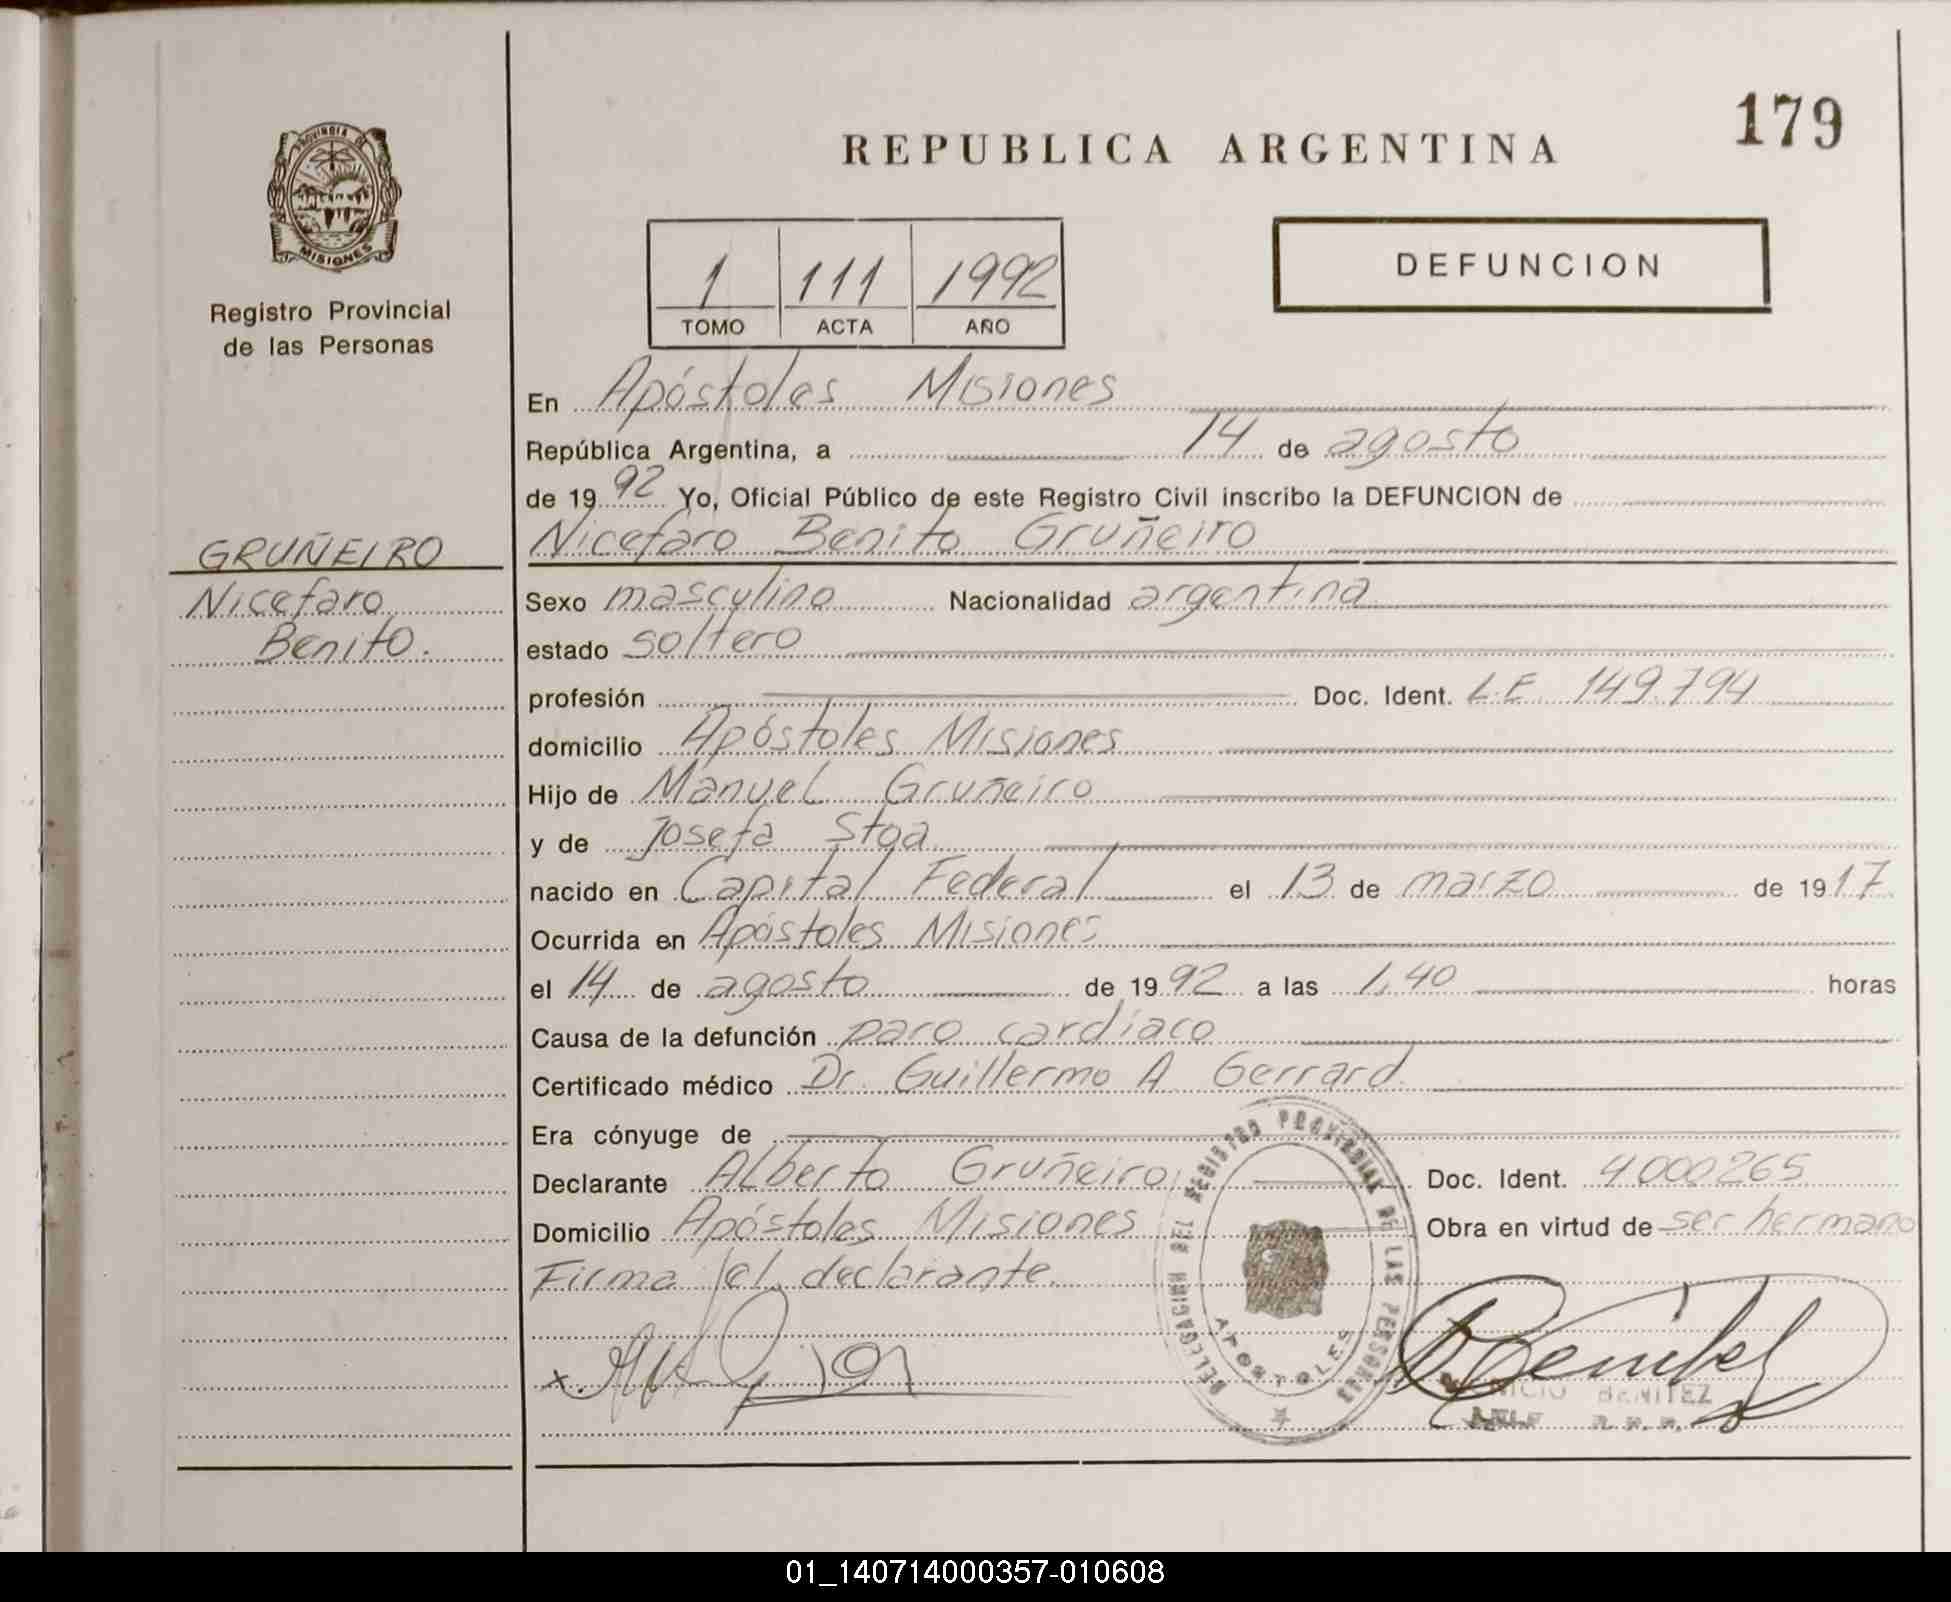 PROVINCIA DE
MISIONES
Registro Provincial
de las Personas
GRUÑEIRO
Nicefaro
Benito.
179
REPUBLICA ARGENTINA
DEFUNCION
1 111 1992
TOMO ACTA AÑO
En Apóstoles Misiones
República Argentina, a 14 de agosto
de 1992 Yo, Oficial Público de este Registro Civil inscribo la DEFUNCION de
Nicefaro Benito Gruñeiro
Sexo masculino Nacionalidad argentina
estado soltero
profesión Doc. Ident. L.E. 149.794
domicilio Apóstoles Misiones
Hijo de Manuel Gruñeiro
y de Josefa Stga.
nacido en Capital Federal el 13 de marzo de 1917
Ocurrida en Apóstoles Misiones
el 14 de agosto de 1992 a las 1,40 horas
Causa de la defunción paro cardíaco
Certificado médico Dr. Guillermo A. Gerrard
Era cónyuge de
Declarante Alberto Gruñeiro Doc. Ident. 4000265
Domicilio Apóstoles Misiones Obra en virtud de ser hermano
Firma el declarante.
REGISTRO PROVINCIAL DE LAS PERSONAS
DELEGACION
APOSTOLES
x
BENITEZ
01_140714000357-010608